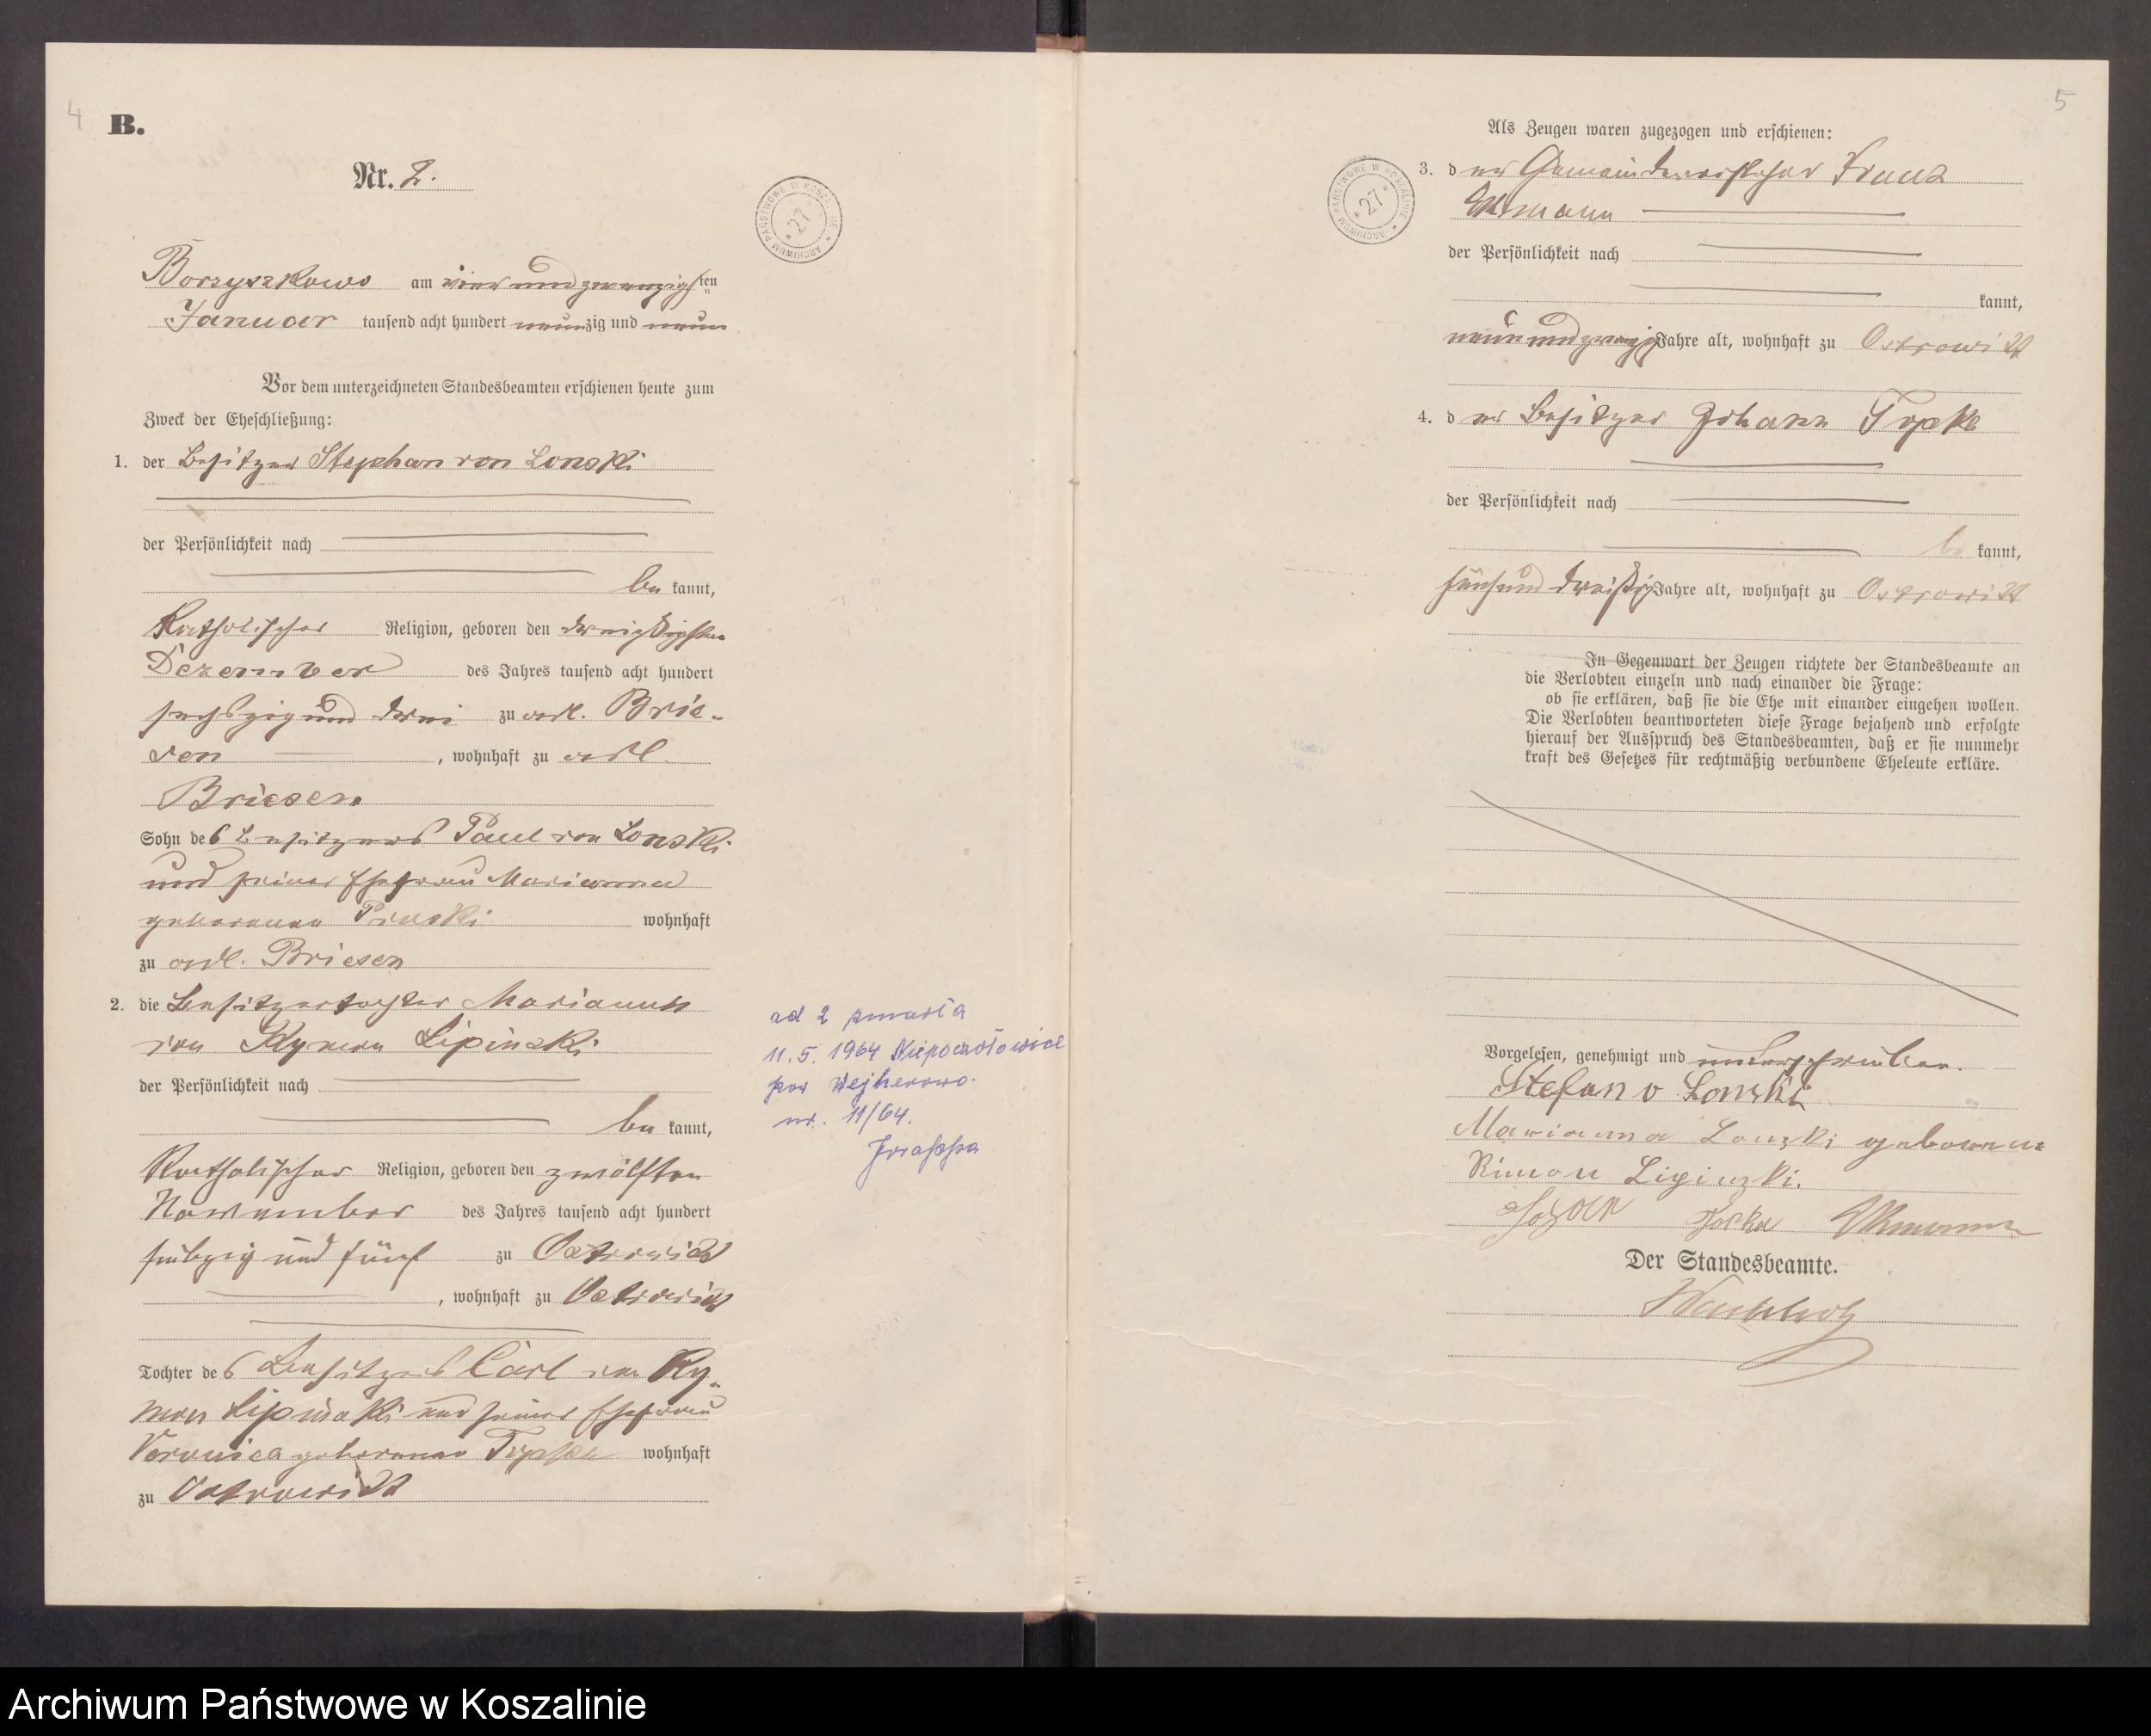 4
B.
Nr. 2.
ARCHIWUM PAŃSTWOWE W KOSZALINIE * 27 *
Borzyszkowo am vier und zwanzigsten
Januar tausend acht hundert neunzig und neun
Vor dem unterzeichneten Standesbeamten erschienen heute zum
Zweck der Eheschließung:
1. der Besitzer Stephan von Lonski
der Persönlichkeit nach
be kannt,
Katholischer Religion, geboren den dreißigsten
Dezember des Jahres tausend acht hundert
sechszig und drei zu adl. Brie-
sen , wohnhaft zu adl.
Briesen
Sohn des Besitzers Paul von Lonski
und seiner Ehefrau Marianna
geborenen wohnhaft
zu adl. Briesen
2. die Besitzertochter Marianna
von Rymon Lipinski
der Persönlichkeit nach
be kannt,
Katholischer Religion, geboren den zwölften
November des Jahres tausend acht hundert
siebzig und fünf zu Ostrowitt
, wohnhaft zu Ostrowitt
Tochter des Besitzers Carl von Ry-
mon Lipinski und seiner Ehefrau
Veronica geborenen wohnhaft
zu Ostrowitt
ad 2 zmarła
11.5.1964 Niepoczołowice
pow Wejherowo.
nr. 11/64.
5
Als Zeugen waren zugezogen und erschienen:
ARCHIWUM PAŃSTWOWE W KOSZALINIE * 27 *
3. d er Gemeindevorsteher Franz
der Persönlichkeit nach
kannt,
neun und zwanzig Jahre alt, wohnhaft zu Ostrowitt
4. d er Besitzer Johann
der Persönlichkeit nach
be kannt,
fünf und dreißig Jahre alt, wohnhaft zu Ostrowitt
In Gegenwart der Zeugen richtete der Standesbeamte an
die Verlobten einzeln und nach einander die Frage:
ob sie erklären, daß sie die Ehe mit einander eingehen wollen.
Die Verlobten beantworteten diese Frage bejahend und erfolgte
hierauf der Ausspruch des Standesbeamten, daß er sie nunmehr
kraft des Gesetzes für rechtmäßig verbundene Eheleute erkläre.
Vorgelesen, genehmigt und unterschrieben.
Stefan v Lonski
Marianna Lonzki geborene
Rimon Lipinzki.
Der Standesbeamte.
Archiwum Państwowe w Koszalinie